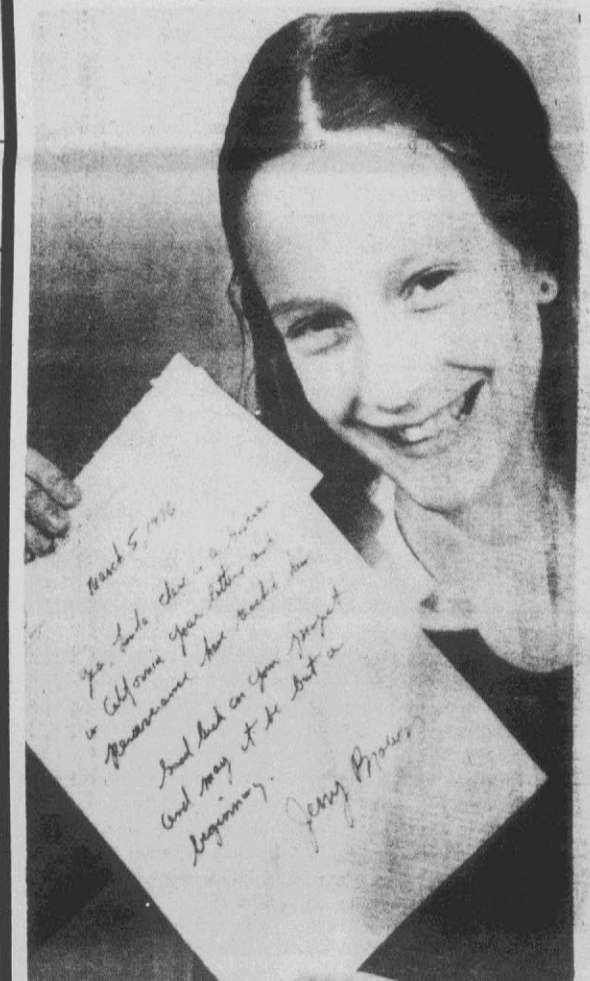 March 5, 1976
Yes, Linda, there is a Governor
in California your letters and
perseverance have reached him
Good luck on your project
and may it be but a
beginning.
Jerry Brown